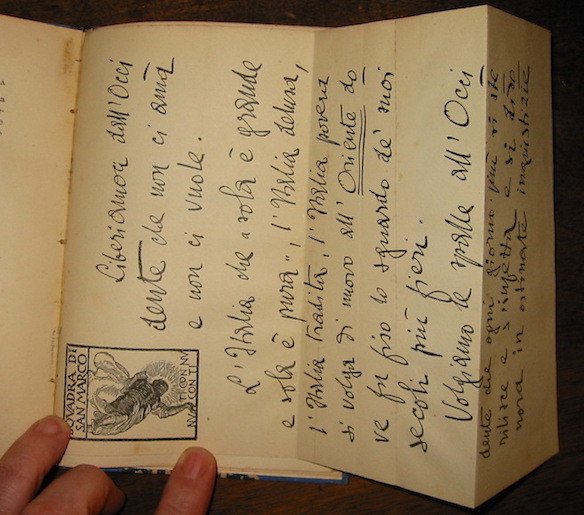 Liberiamoci dall'Occi
dente che non ci ama
e non ci vuole.
L'Italia che "sola è grande
e sola è pura", l'Italia delusa,
l'Italia tradita, l'Italia povera
si volga di nuovo all'Oriente do
ve fu fiso lo sguardo de' suoi
secoli più fieri.
Volgiamo le spalle all'Occi
dente che ogni giorno più si ste
rilisce e s'infetta e si diso
nora in ostinate ingiustizie
SQUADRA DI
SAN MARCO
TI CON NU
NU CON TI